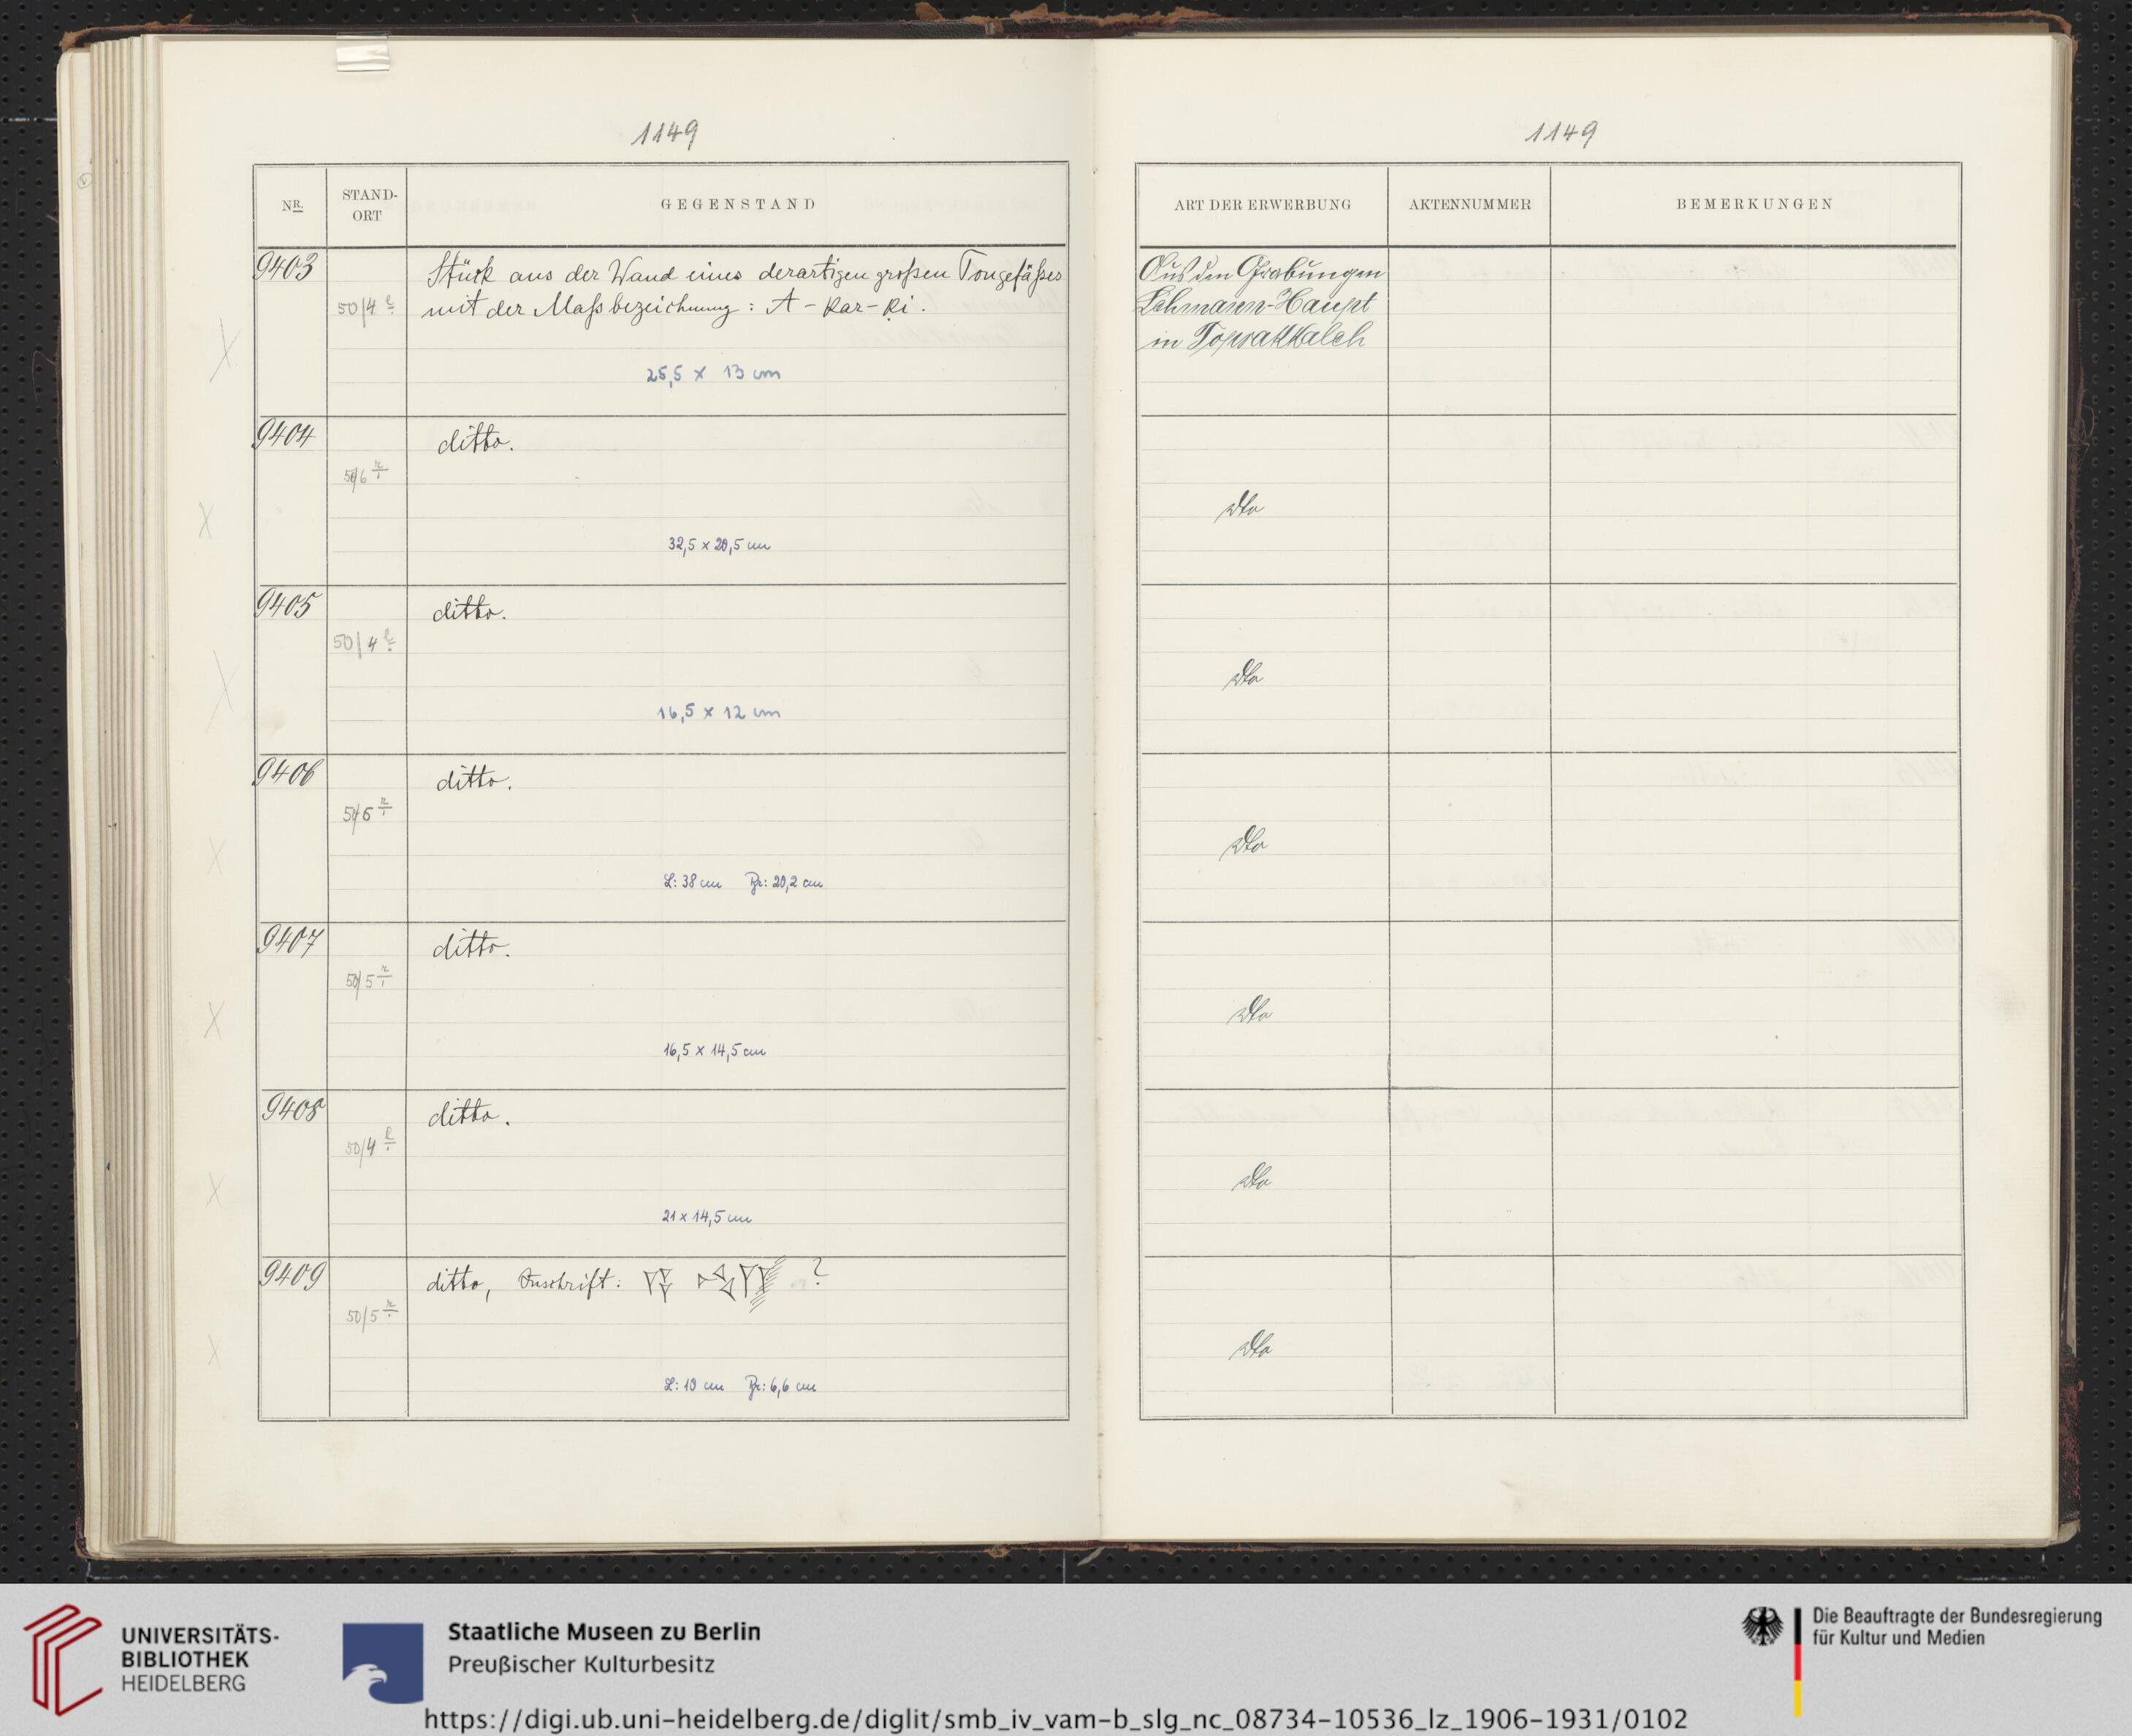 1149
NR.
STAND-
ORT
GEGENSTAND
9403
50/4 l
Stück aus der Wand eines derartigen großen Tongefäßes
mit der Maßbezeichnung: A-kar-ki.
25,5 x 13 cm
9404
50/6 r
ditto.
32,5 x 20,5 cm
9405
50/4 l
ditto.
16,5 x 12 cm
9406
ditto.
L: 38 cm Br: 20,2 cm
9407
50/5 r
ditto.
16,5 x 14,5 cm
9408
50/4 l
ditto.
21 x 14,5 cm
9409
50/5 r
ditto, Inschrift: ?
L: 19 cm Br: 6,6 cm
1149
ART DER ERWERBUNG
AKTENNUMMER
BEMERKUNGEN
Aus den Grabungen
Lehmann-Haupt
in Toprakkaleh
dto
dto
dto
dto
dto
dto
UNIVERSITÄTS-
BIBLIOTHEK
HEIDELBERG
Staatliche Museen zu Berlin
Preußischer Kulturbesitz
Die Beauftragte der Bundesregierung
für Kultur und Medien
https://digi.ub.uni-heidelberg.de/diglit/smb_iv_vam-b_slg_nc_08734-10536_lz_1906-1931/0102